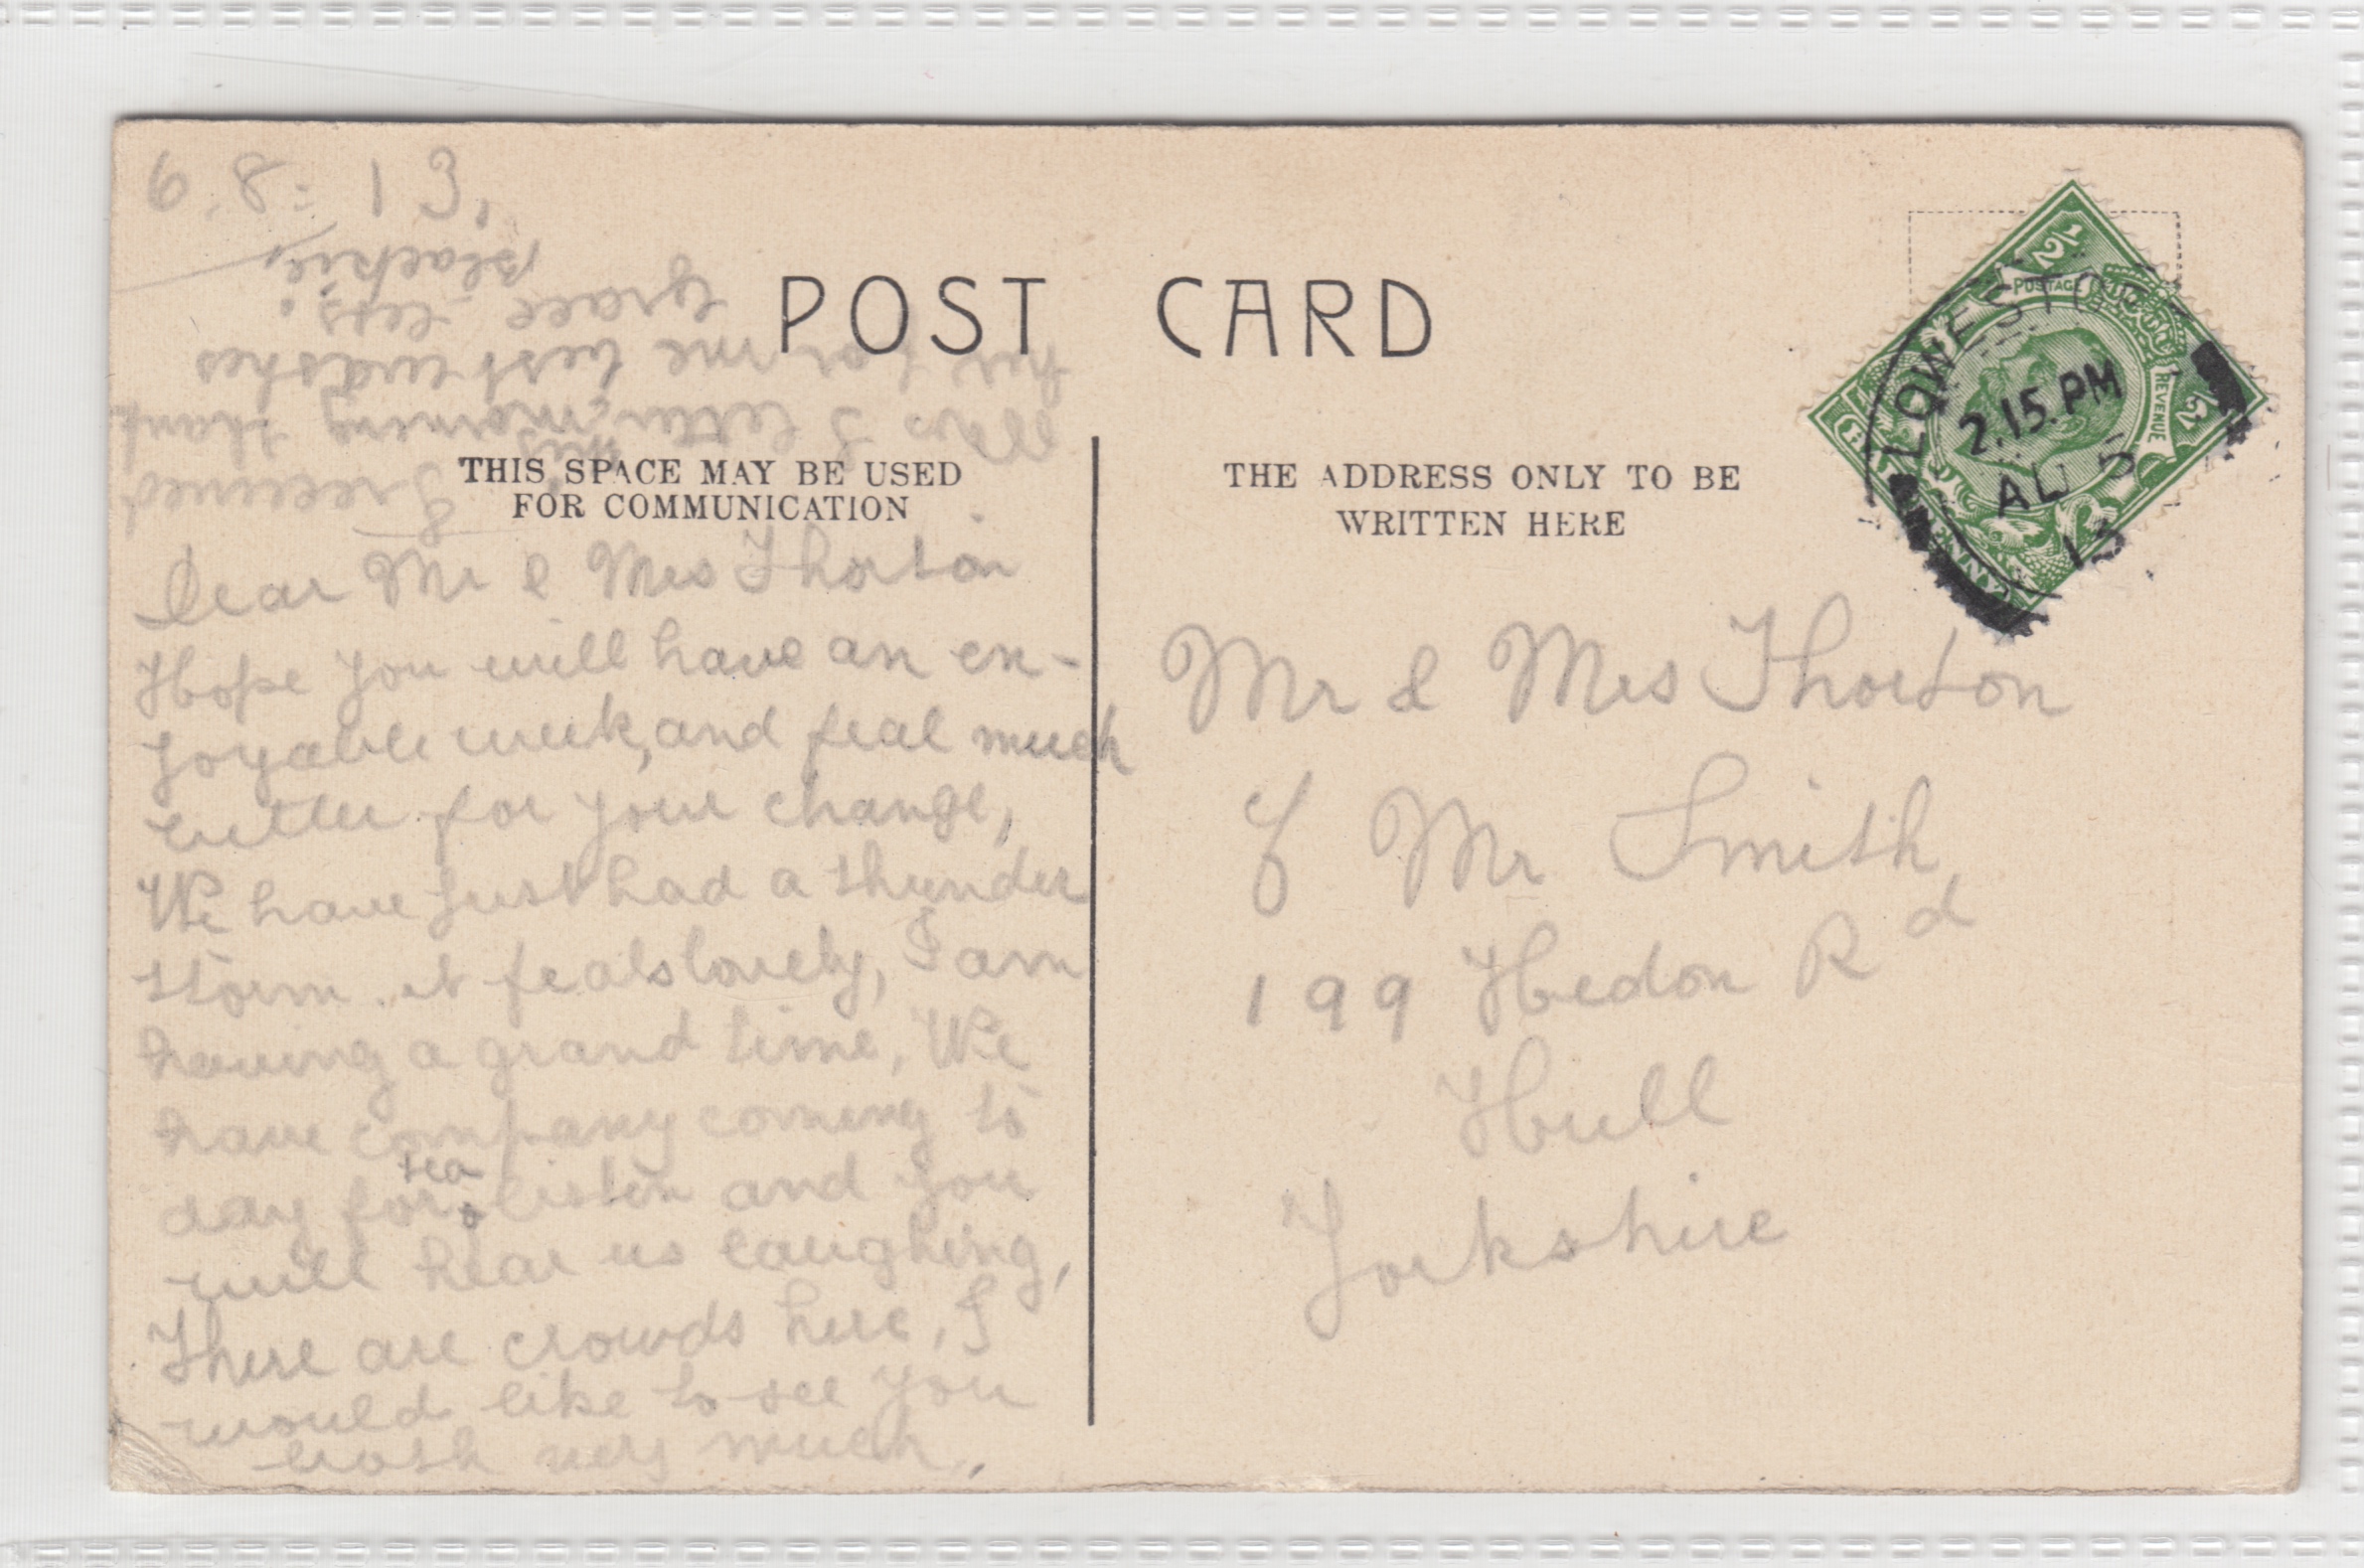 6.8.13.
POST CARD
THIS SPACE MAY BE USED
FOR COMMUNICATION
Dear Mr & Mrs Thorton
Hope you will have an en-
joyable week, and feal much
better for your change,
We have just had a thunder
storm it feals lovely, I am
having a grand time, We
have company coming to
day for tea listen and you
will hear us laughing,
There are crowds here, I
would like to see you
both very much,
I received
letter this morning thank
her for me best wishes
Grace
Blackie
THE ADDRESS ONLY TO BE
WRITTEN HERE
Mr & Mrs Thorton
Mr Smith
199 Hedon Rd
Hull
Yorkshire
LOWESTOFT
2.15.PM
AU 5
13
POSTAGE
REVENUE